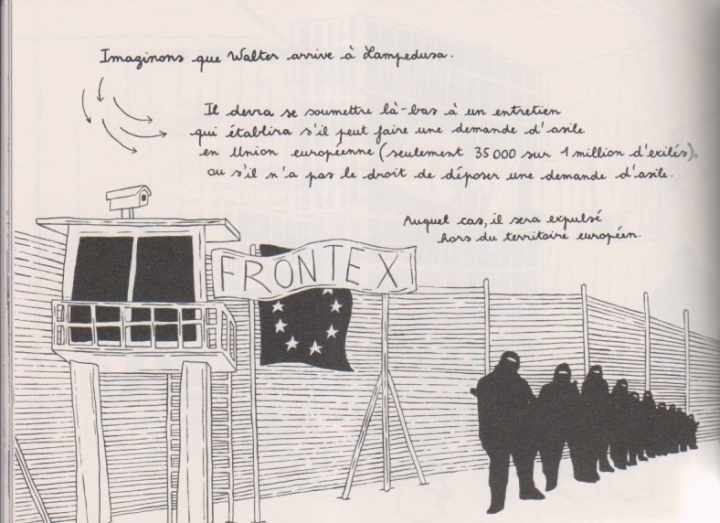 Imaginons que Walter arrive à Lampedusa.
Il devra se soumettre là-bas à un entretien
qui établira s'il peut faire une demande d'asile
en Union européenne (seulement 35 000 sur 1 million d'exilés),
ou s'il n'a pas le droit de déposer une demande d'asile.
Auquel cas, il sera expulsé
hors du territoire européen.
FRONTEX